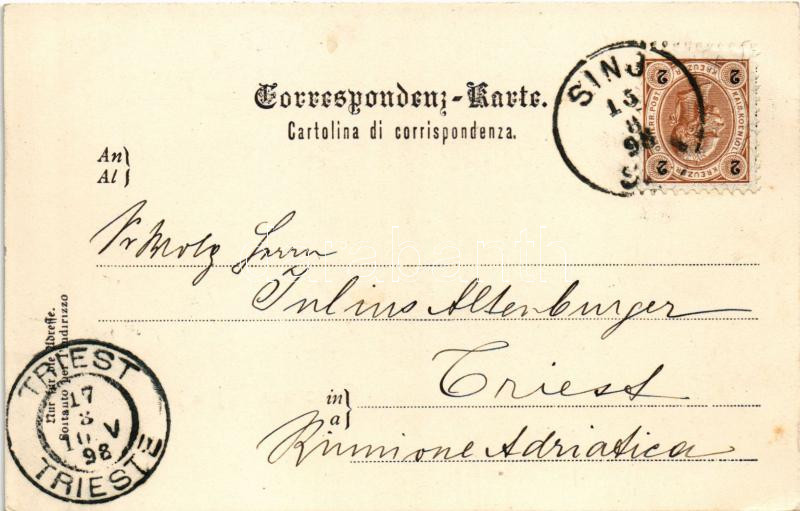 Correspondenz-Karte.
Cartolina di corrispondenza.
SINJ
15
98
2 KREUZER 2
KAIS. KOENIGL. OESTERR. POST
2 KREUZER 2
An
Al
Herrn
Julius Altenburger
in
a
Triest
Riunione Adriatica
Nur für die Adresse.
Soltanto per l'indirizzo
TRIEST
17
3
10 V
98
TRIESTE